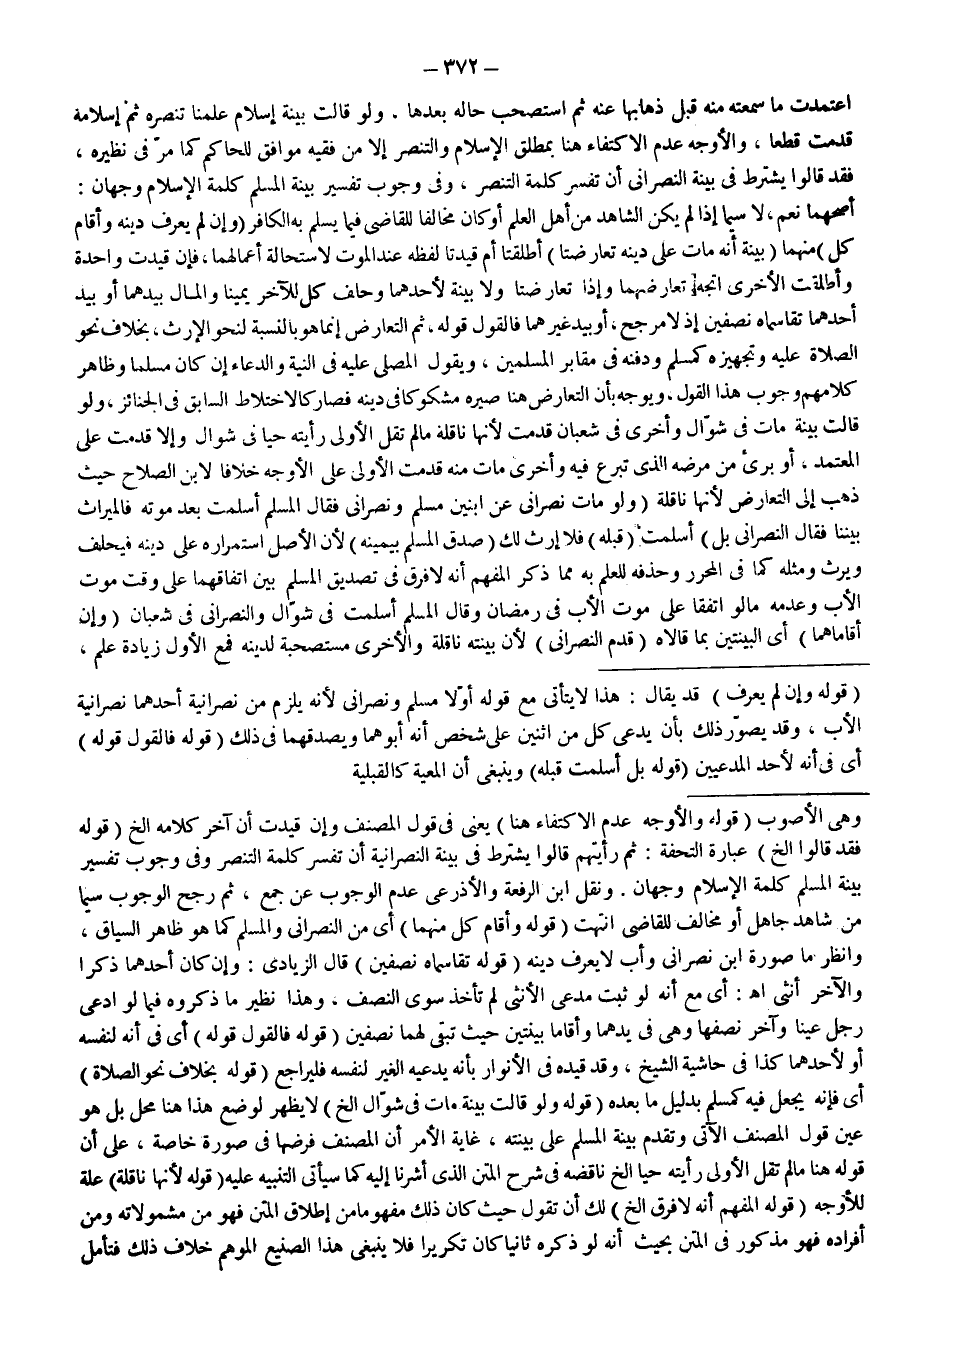 – ٣٧٢ –
اعتمدت ما سمعته منه قبل ذهابها عنه ثم استصحب حاله بعدها . ولو قالت بينة إسلام علمنا تنصره ثم إسلامه
قدمت قطعا ، والأوجه عدم الاكتفاء هنا بمطلق الإسلام والتنصر إلا من فقيه موافق للحاكم كما مرّ فى نظيره ،
فقد قالوا يشترط فى بينة النصرانى أن تفسر كلمة التنصر ، وفى وجوب تفسير بينة المسلم كلمة الإسلام وجهان :
أصحهما نعم ، لا سيما إذا لم يكن الشاهد من أهل العلم أو كان مخالفا للقاضى فيما يسلم به الكافر (وإن لم يعرف دينه وأقام
كل) منهما (بينة أنه مات على دينه تعارضتا) أطلقتا أم قيدتا لفظه عند الموت لاستحالة أعمالهما ، فإن قيدت واحدة
وأطلقت الأخرى اتجه تعارضهما وإذا تعارضتا ولا بينة لأحدهما وحلف كل للآخر يمينا والمال بيدهما أو بيد
أحدهما تقاسماه نصفين إذ لا مرجح ، أو بيد غيرهما فالقول قوله ، ثم التعارض إنما هو بالنسبة لنحو الإرث ، بخلاف نحو
الصلاة عليه وتجهيزه كمسلم ودفنه فى مقابر المسلمين ، ويقول المصلى عليه فى النية والدعاء إن كان مسلما وظاهر
كلامهم وجوب هذا القول ، ويوجه بأن التعارض هنا صيره مشكوكا فى دينه فصار كالاختلاط السابق فى الجنائز ، ولو
قالت بينة مات فى شوّال وأخرى فى شعبان قدمت لأنها ناقلة مالم تقل الأولى رأيته حيا فى شوال وإلا قدمت على
المعتمد ، أو برئ من مرضه الذى تبرع فيه وأخرى مات منه قدمت الأولى على الأوجه خلافا لابن الصلاح حيث
ذهب إلى التعارض لأنها ناقلة ( ولو مات نصرانى عن ابنين مسلم ونصرانى فقال المسلم أسلمت بعد موته فالميراث
بيننا فقال النصرانى بل) أسلمت (قبله) فلا إرث لك (صدق المسلم بيمينه) لأن الأصل استمراره على دينه فيحلف
ويرث ومثله كما فى المحرر وحذفه للعلم به مما ذكر المفهم أنه لا فرق فى تصديق المسلم بين اتفاقهما على وقت موت
الأب وعدمه مالو اتفقا على موت الأب فى رمضان وقال المسلم أسلمت فى شوّال والنصرانى فى شعبان ( وإن
أقاماهما ) أى البينتين بما قالاه ( قدم النصرانى ) لأن بينته ناقلة والأخرى مستصحبة لدينه فمع الأول زيادة علم ،
( قوله وإن لم يعرف ) قد يقال : هذا لايتأتى مع قوله أوّلا مسلم ونصرانى لأنه يلزم من نصرانية أحدهما نصرانية
الأب ، وقد يصوّر ذلك بأن يدعى كل من اثنين على شخص أنه أبوهما ويصدقهما فى ذلك ( قوله فالقول قوله )
أى فى أنه لأحد المدعيين (قوله بل أسلمت قبله) وينبغى أن المعية كالقبلية
وهى الأصوب ( قوله والأوجه عدم الاكتفاء هنا ) يعنى فى قول المصنف وإن قيدت أن آخر كلامه الخ ( قوله
فقد قالوا الخ ) عبارة التحفة : ثم رأيتهم قالوا يشترط فى بينة النصرانية أن تفسر كلمة التنصر وفى وجوب تفسير
بينة المسلم كلمة الإسلام وجهان . ونقل ابن الرفعة والأذرعى عدم الوجوب عن جمع ، ثم رجح الوجوب سيما
من شاهد جاهل أو مخالف للقاضى انتهت ( قوله وأقام كل منهما ) أى من النصرانى والمسلم كما هو ظاهر السياق ،
وانظر ما صورة ابن نصرانى وأب لايعرف دينه ( قوله تقاسماه نصفين ) قال الزيادى : وإن كان أحدهما ذكرا
والآخر أنثى اهـ : أى مع أنه لو ثبت مدعى الأنثى لم تأخذ سوى النصف ، وهذا نظير ما ذكروه فيما لو ادعى
رجل عينا وآخر نصفها وهى فى يدهما وأقاما بينتين حيث تبقى لهما نصفين ( قوله فالقول قوله ) أى فى أنه لنفسه
أو لأحدهما كذا فى حاشية الشيخ ، وقد قيده فى الأنوار بأنه يدعيه الغير لنفسه فليراجع ( قوله بخلاف نحو الصلاة )
أى فإنه يجعل فيه كمسلم بدليل ما بعده ( قوله ولو قالت بينة مات فى شوّال الخ ) لايظهر لوضع هذا هنا محل بل هو
عين قول المصنف الآتى وتقدم بينة المسلم على بينته ، غاية الأمر أن المصنف فرضها فى صورة خاصة ، على أن
قوله هنا مالم تقل الأولى رأيته حيا الخ ناقضه فى شرح المتن الذى أشرنا إليه كما سيأتى التنبيه عليه (قوله لأنها ناقلة) علة
للأوجه ( قوله المفهم أنه لا فرق الخ ) لك أن تقول حيث كان ذلك مفهوما من إطلاق المتن فهو من مشمولاته ومن
أفراده فهو مذكور فى المتن بحيث أنه لو ذكره ثانيا كان تكريرا فلا ينبغى هذا الصنيع الموهم خلاف ذلك فتأمل